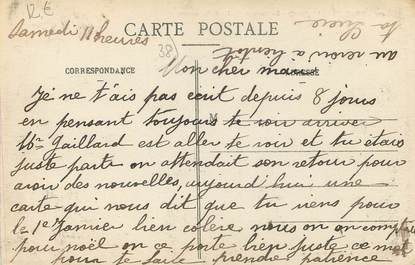 12€
Samedi 11 heures
CARTE POSTALE
38
ta Lucie
au revoir à bientot
CORRESPONDANCE
Mon cher
Je ne t'ais pas ecrit depuis 8 jours
en pensant toujours te voir arriver
Mr Gaillard est aller te voir et tu étais
juste parti on attendait son retour pour
avoir des nouvelles, aujourd'hui une
carte qui nous dit que tu viens pour
le 1er Janvier bien colère nous on comptais
pour noël on ce porte bien juste ce mot
pour te faire prendre patience